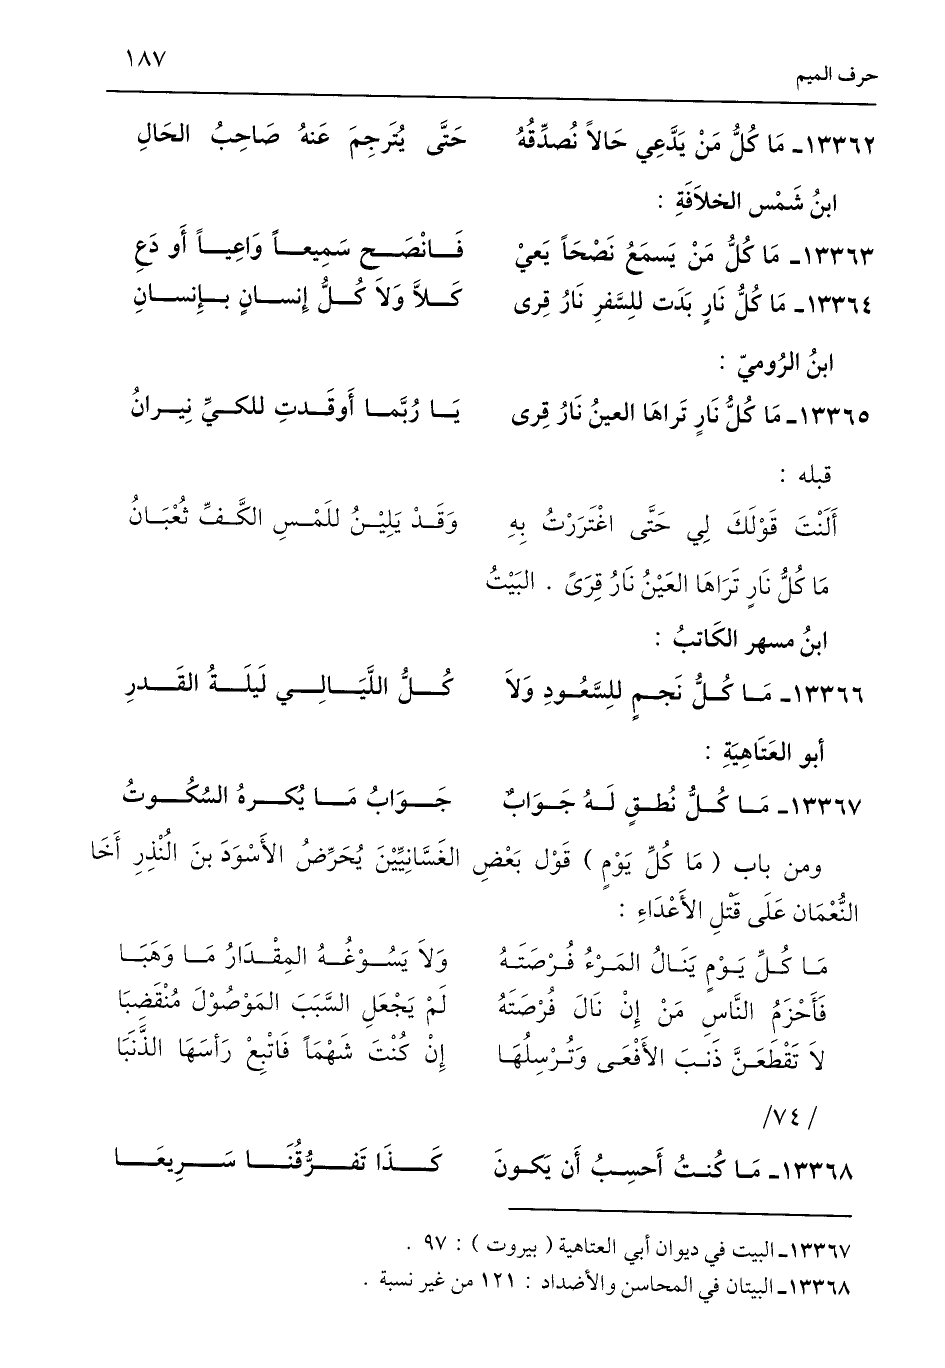 حرف الميم ١٨٧
١٣٣٦٢ـ مَا كُلُّ مَنْ يَدَّعِي حَالاً نُصدِّقُهُ حَتَّى يُتَرجِمَ عَنهُ صَاحِبُ الحَالِ
ابنُ شَمْسِ الخلاَفَةِ :
١٣٣٦٣ـ مَا كُلُّ مَنْ يَسمَعُ نَصْحَاً يَعيْ فَـانْصَـح سَمِيعـاً وَاعِيـاً أَو دَعِ
١٣٣٦٤ـ مَا كُلُّ نَارٍ بَدَت للِسَّفرِ نَارُ قِرى كَـلاَّ وَلاَ كُـلُّ إِنسـانٍ بـإِنسـانِ
ابنُ الرُوميّ :
١٣٣٦٥ـ مَا كُلُّ نَارٍ تَراهَا العينُ نَارُ قِرى يَـا رُبَّمـا أَوقَـدتِ للكيِّ نِيـرانُ
قبله :
أَلَنْتَ قَوْلَكَ لِي حَتَّى اغْتَرَرْتُ بِهِ وَقَـدْ يَلِيْـنُ للَمْـسِ الكَّـفِّ ثُعْبَـانُ
مَا كُلُّ نَارٍ تَرَاهَا العَيْنُ نَارُ قِرَىً . البَيْتُ
ابنُ مسهر الكَاتبُ :
١٣٣٦٦ـ مَـا كُـلُّ نَجـمٍ للِسَّعُـودِ وَلاَ كُـلُّ اللَّيَـالِـي لَيلَـةُ القَـدرِ
أبو العَتَاهِيَةِ :
١٣٣٦٧ـ مَـا كُـلُّ نُطـقٍ لَـهُ جَـوَابٌ جَـوَابُ مَـا يُكـرهُ السُكُـوتُ
ومن باب ( مَا كُلِّ يَوْمٍ ) قَوْل بَعْضِ الغَسَّانِيِّيْنَ يُحَرِّضُ الأَسْوَدَ بنَ المُنْذِرِ أَخَا
النُّعْمَان عَلَى قَتْلِ الأَعْدَاءِ :
مَـا كُـلِّ يَـوْمٍ يَنَـالُ المَـرْءُ فُـرْصَتَـهُ وَلاَ يَسُـوْغُـهُ المِقْـدَارُ مَـا وَهَبَـا
فَأَحْزَمُ النَّاسِ مَنْ إِنْ نَالَ فُرْصَتَهُ لَمْ يَجْعَلِ السَّبَبَ المَوْصُوْلَ مُنْقَضِبَا
لاَ تَقْطَعَنَّ ذَنبَ الأَفْعَى وَتُـرْسِلُهَـا إِنْ كُنْتَ شَهْمَاً فَاتْبِعْ رَأسَهَا الذَّنَبَا
/ ٧٤/
١٣٣٦٨ـ مَـا كُنـتُ أَحسِـبُ أَن يَكـونَ كَـذَا تَفـرُّقُنَـا سَـرِيعَـا
١٣٣٦٧ـ البيت في ديوان أبي العتاهية ( بيروت ) : ٩٧ .
١٣٣٦٨ـ البيتان في المحاسن والأضداد : ١٢١ من غير نسبة .